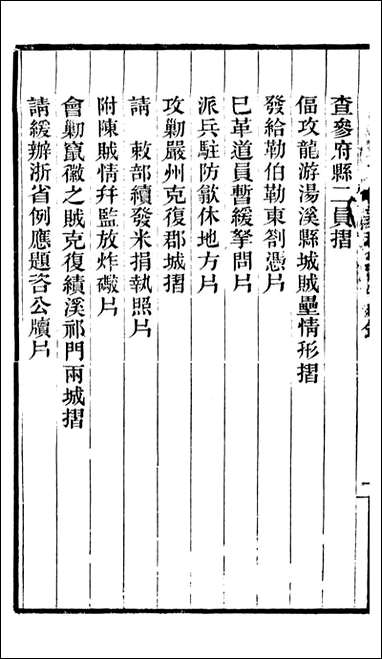 查參府縣二員摺
偪攻龍游湯溪縣城賊壘情形摺
發給勒伯勒東劄憑片
已革道員暫緩拏問片
派兵駐防歙休地方片
攻勦嚴州克復郡城摺
請 敕部續發米捐執照片
附陳賊情幷監放炸礮片
會勦竄徽之賊克復績溪祁門兩城摺
請緩辦浙省例應題咨公牘片